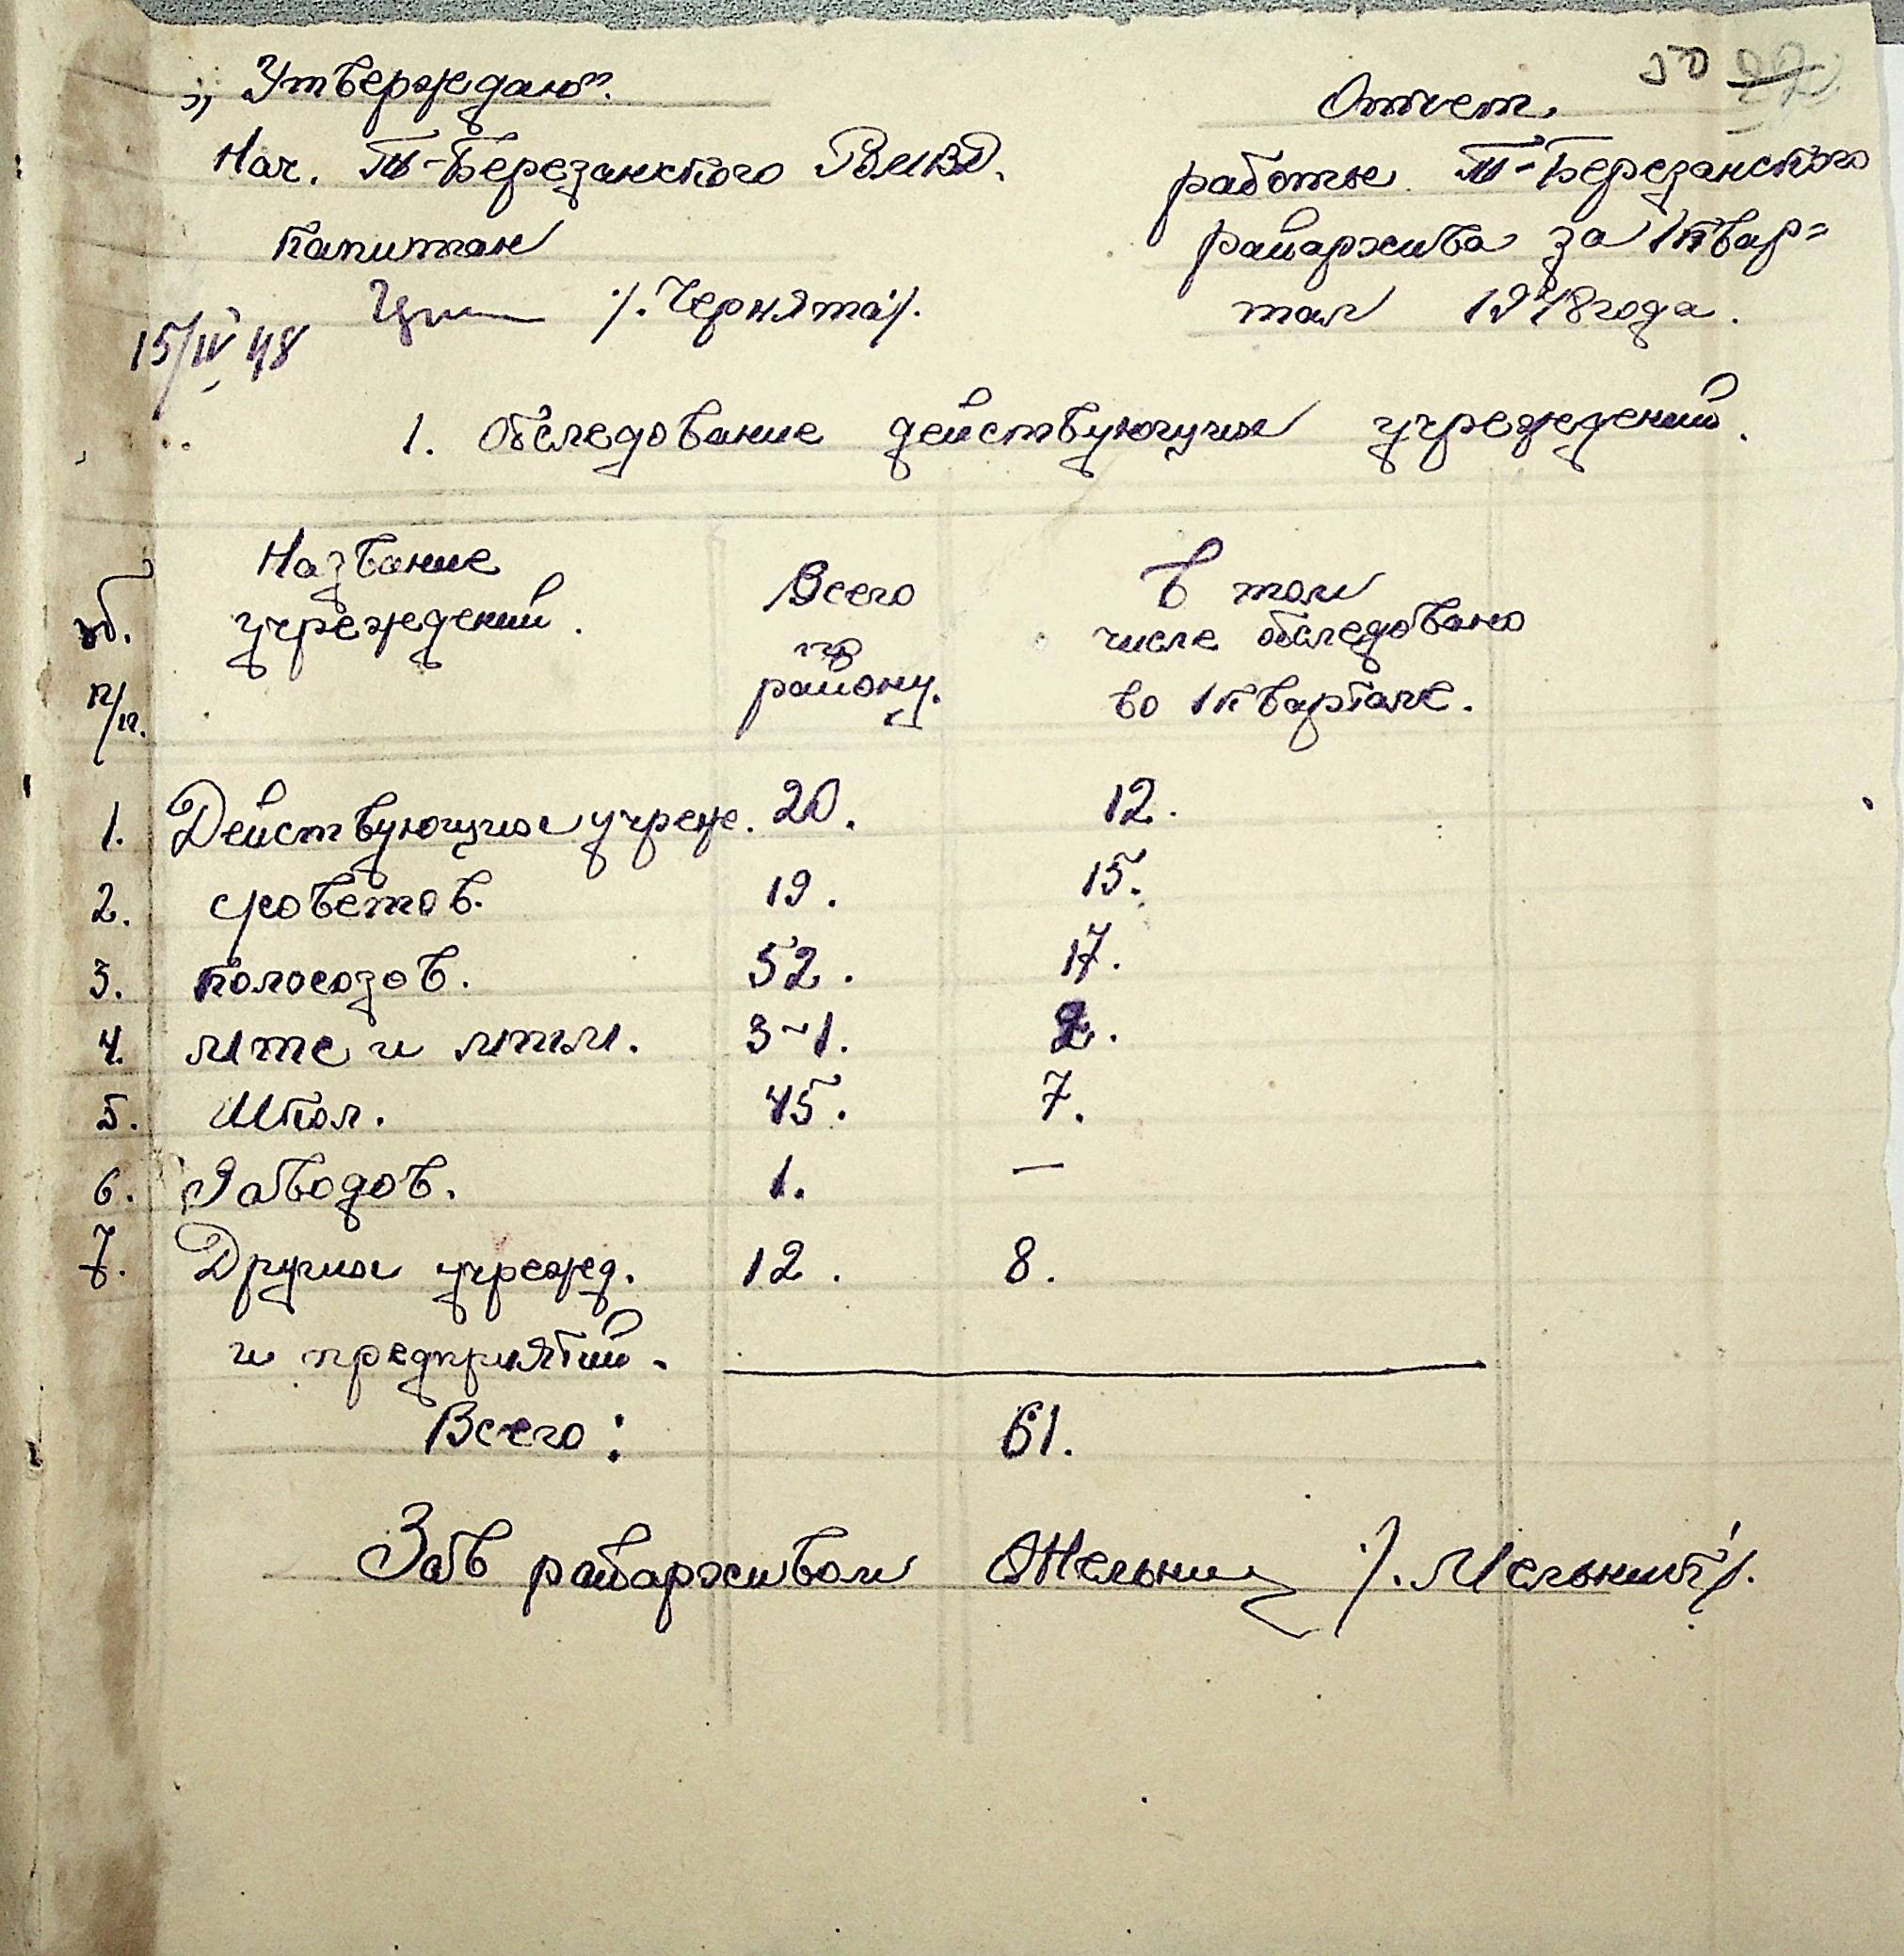 50 22
„Утверждаю".
Нач. Т-Березанского РОМВД.
капитан
/.Чернята/.
15/IV 48
Отчет
работы Т-Березанского
райархива за 1 квар=
тал 1948 года.
1. Обследование действующих учреждений.
№ п/п.
Название учреждений.
Всего по району.
В том числе обследовано во 1 квартале.
1. Действующих учреж. 20. 12.
2. с/советов. 19. 15.
3. колхозов. 52. 17.
4. МТС и МТМ. 3-1. 2.
5. Школ. 45. 7.
6. Заводов. 1. —
7. Других учрежд. 12. 8.
и предприятий.
Всего: 61.
Зав райархивом ОМельник /.Мельник/.